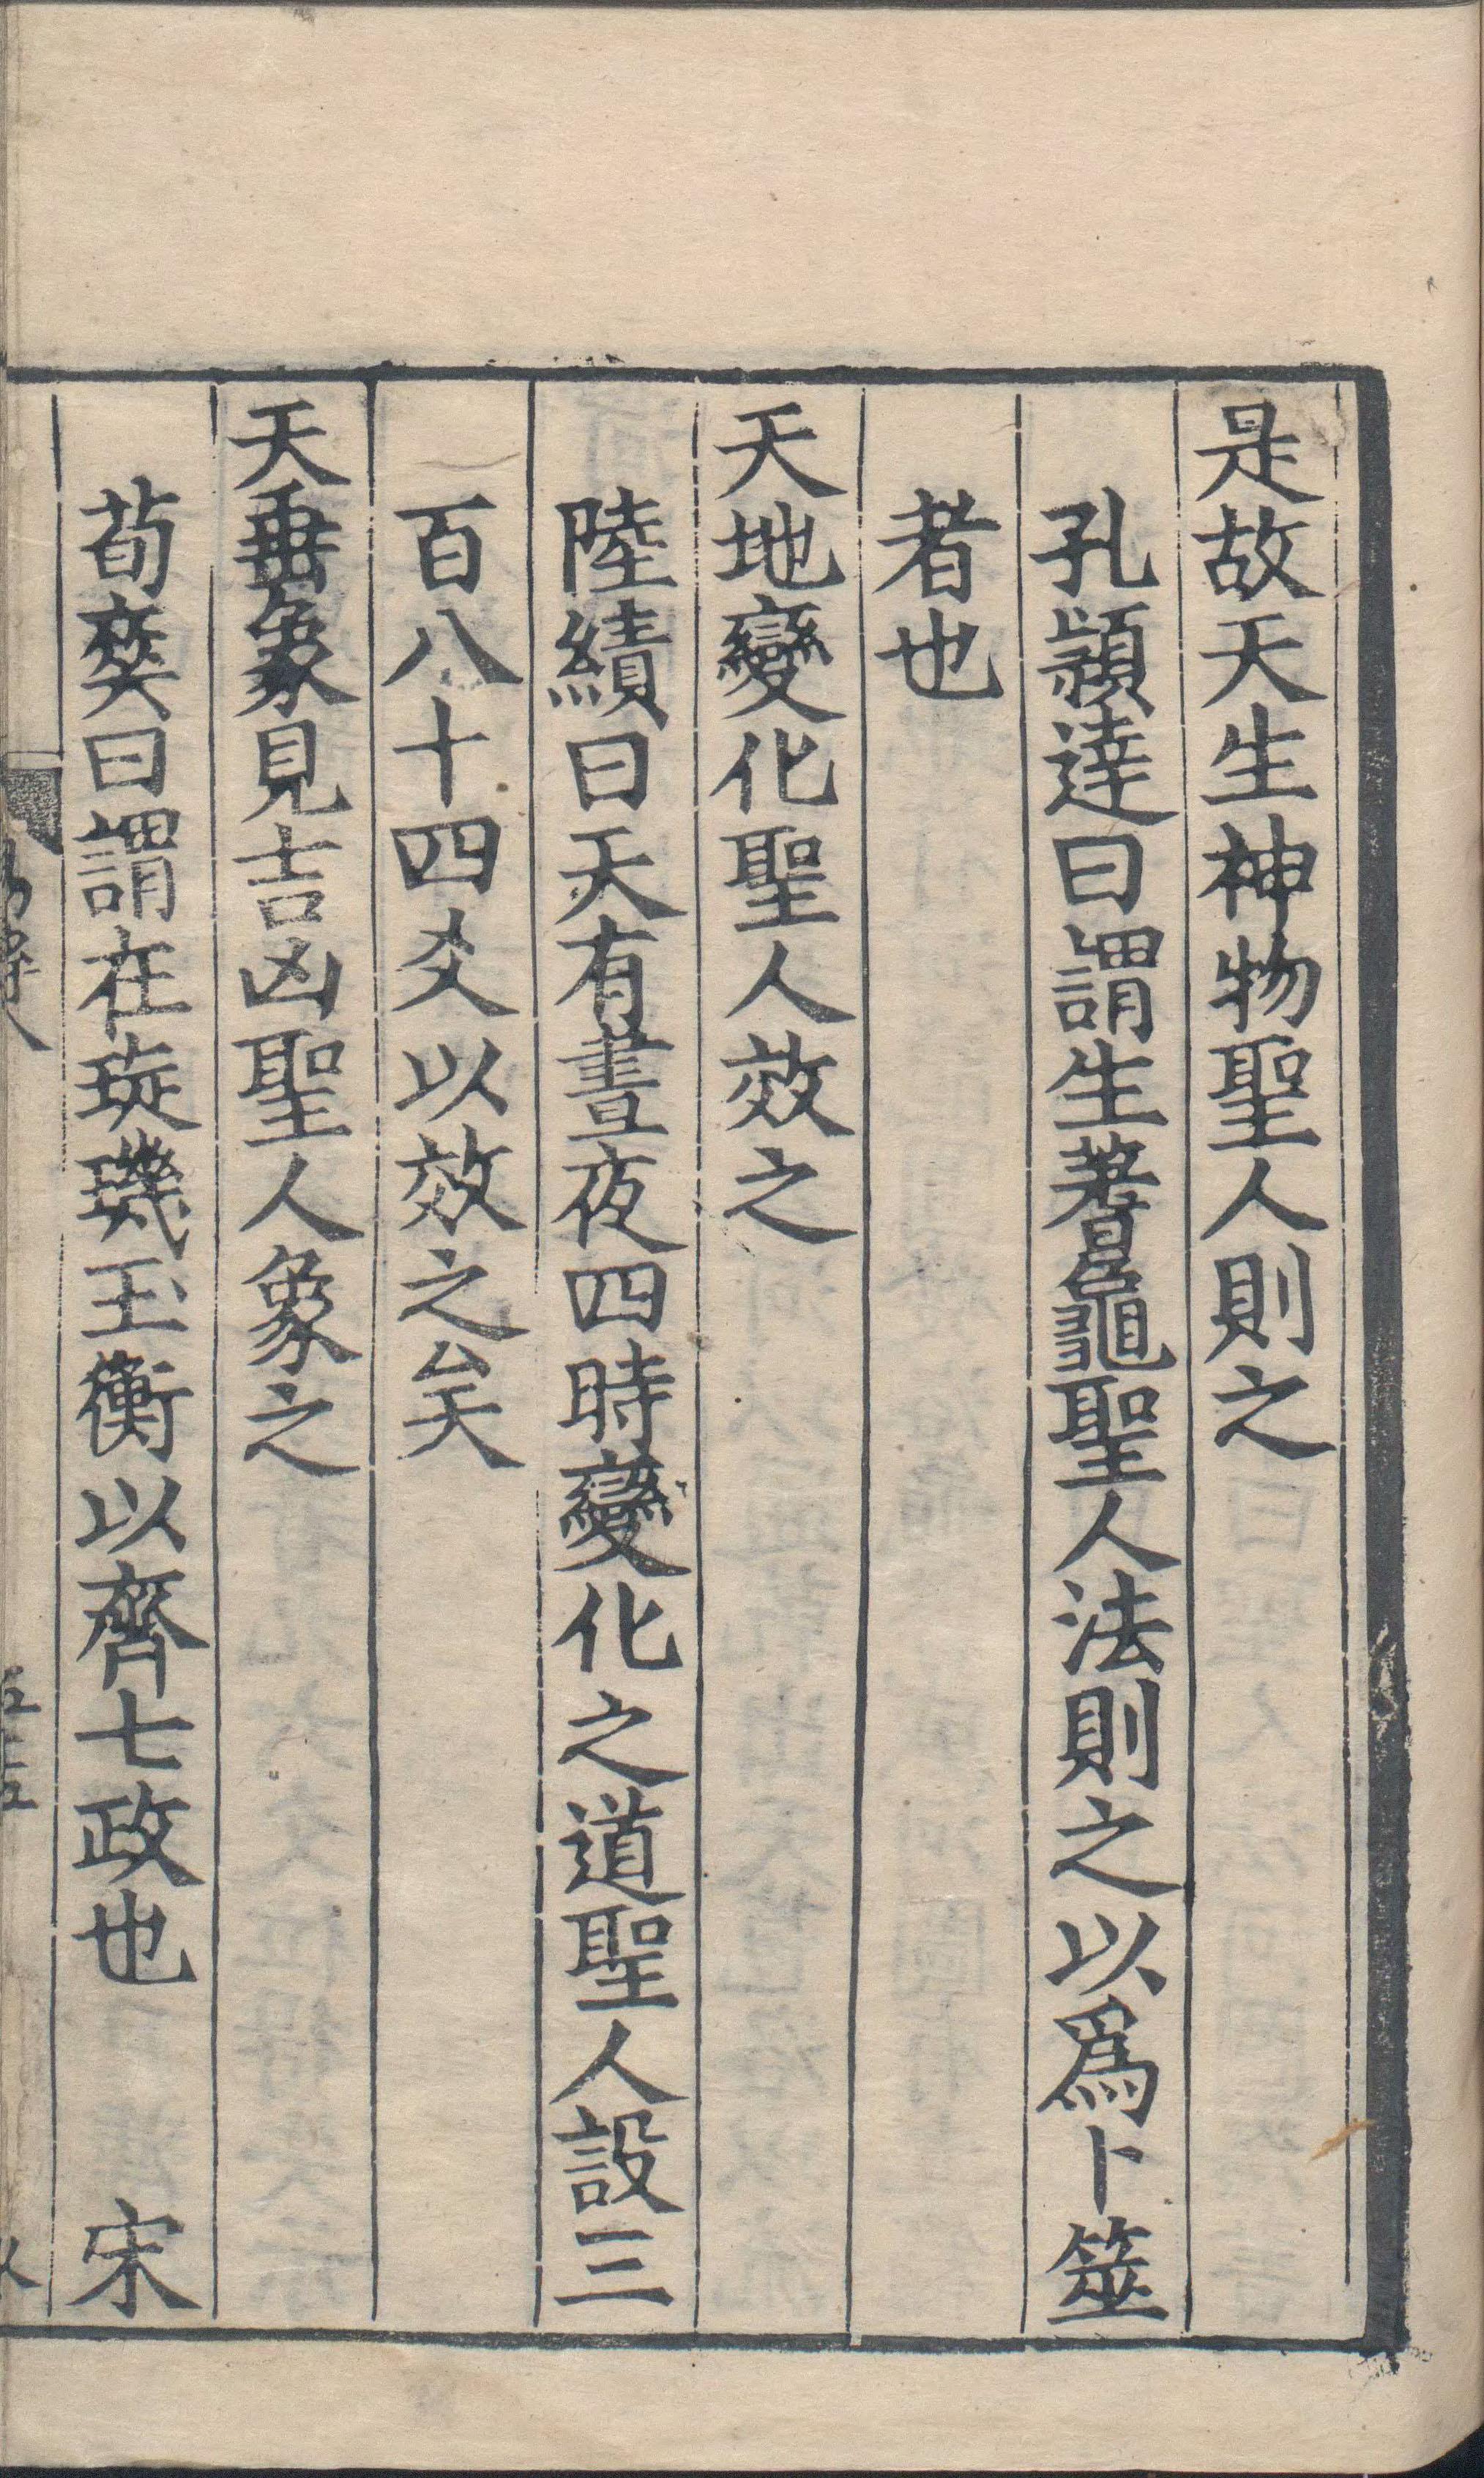 是故天生神物聖人則之
孔頴達曰謂生蓍龜聖人法則之以爲卜筮
者也
天地變化聖人效之
陸績曰天有晝夜四時變化之道聖人設三
百八十四爻以效之矣
天垂象見吉凶聖人象之
荀奭曰謂在琁璣玉衡以齊七政也　宋